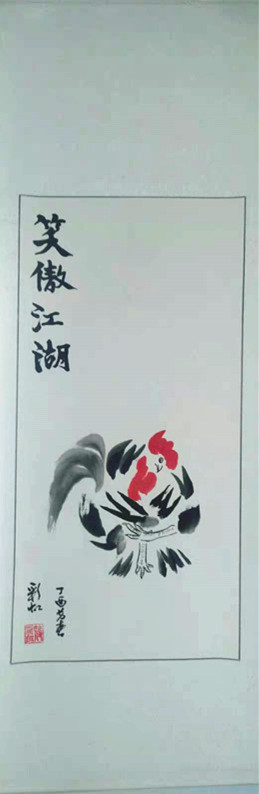 笑傲江湖
丁酉
彩虹